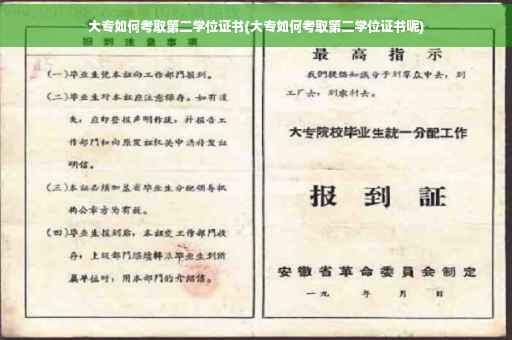 大专如何考取第二学位证书(大专如何考取第二学位证书呢)
报到注意事项
(一)毕业生凭本证向工作部门报到。
(二)毕业生对本证应注意保存。如有遗
失,应即登报声明作废,并报告工
作部门和向原发证机关申请补发证
明信。
(三)本证必须加盖省毕业生分配领导机
构公章方为有效。
(四)毕业生报到后,本证交工作部门收
存;上级部门继续转派毕业生到所
属单位时,用本部门的介绍信。
最高指示
我们提倡知识分子到群众中去,到
工厂去,到农村去。
大专院校毕业生統一分配工作
报到証
安徽省革命委員会制定
一九 年 月 日